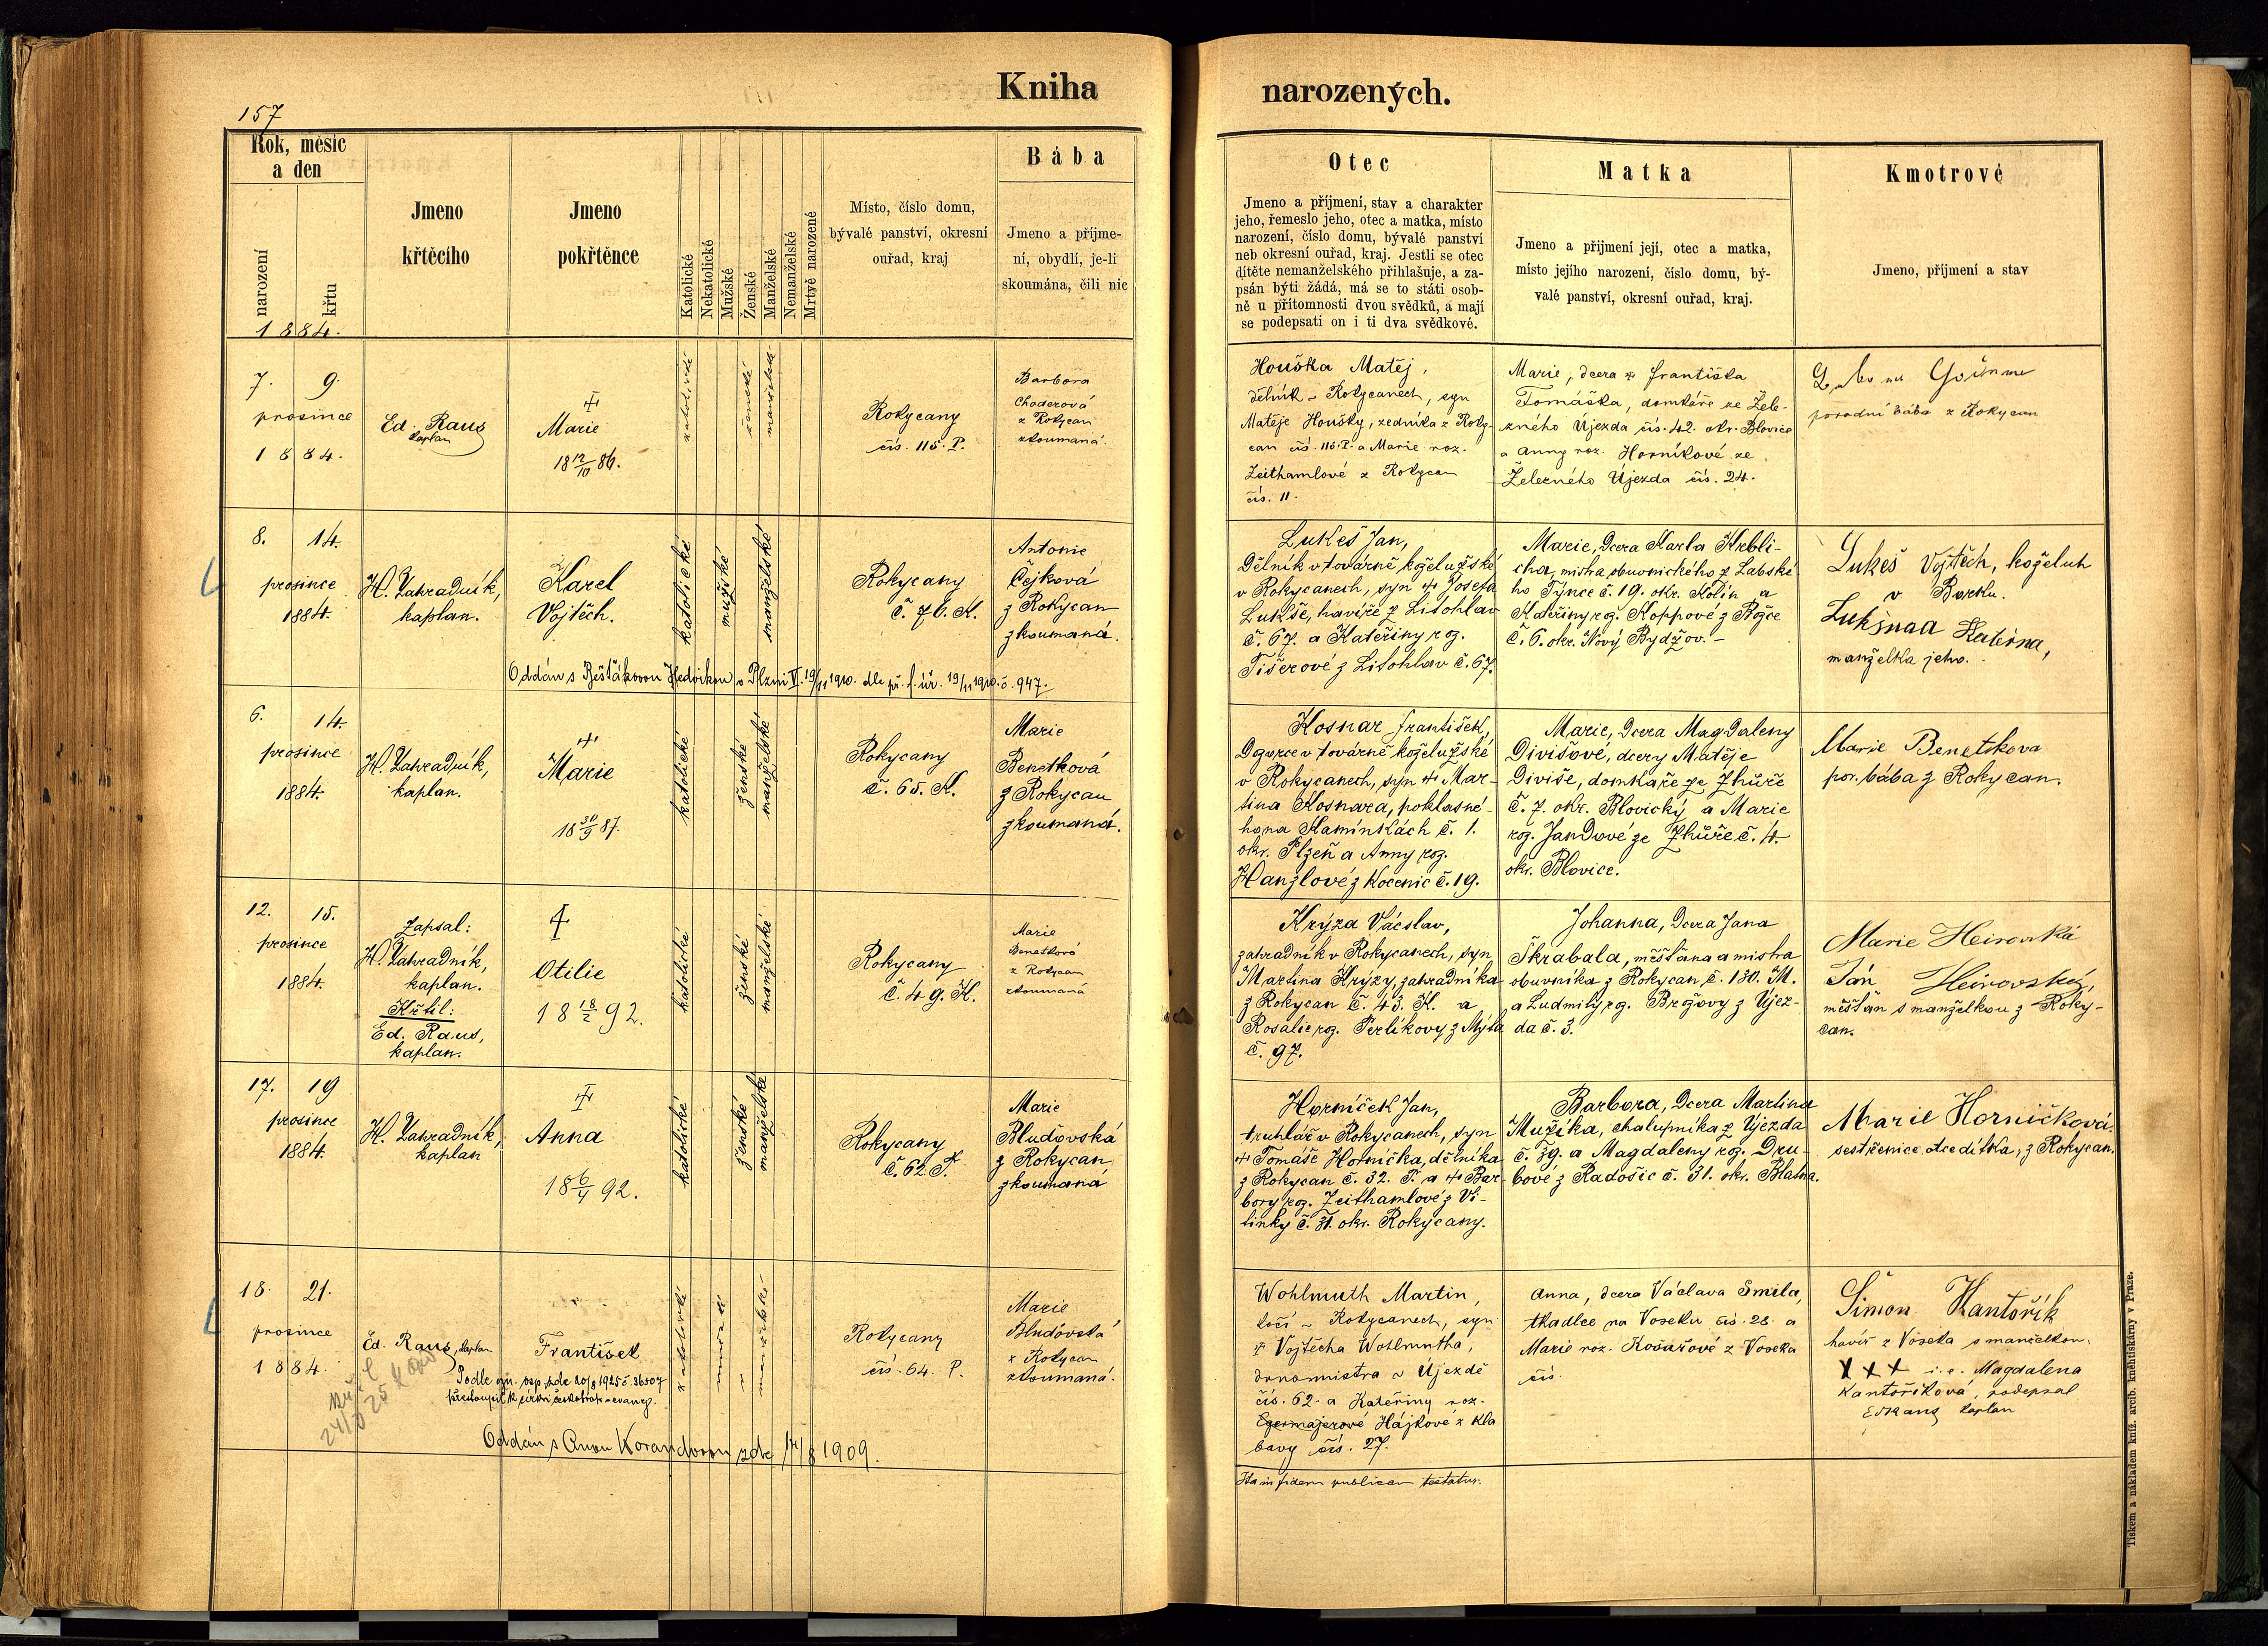 157
Kniha narozených.
Rok, měsíc
a den
narození
křtu
1884.
Jmeno
křtěcího
Jmeno
pokřtěnce
Katolické
Nekatolické
Mužské
Ženské
Manželské
Nemanželské
Mrtvě narozené
Místo, číslo domu,
bývalé panství, okresní
ouřad, kraj
Bába
Jmeno a příjme-
ní, obydlí, je-li
skoumána, čili nic
Otec
Jmeno a příjmení, stav a charakter
jeho, řemeslo jeho, otec a matka, místo
narození, číslo domu, bývalé panství
neb okresní ouřad, kraj. Jestli se otec
dítěte nemanželského přihlašuje, a za-
psán býti žádá, má se to státi osob-
ně u přítomnosti dvou svědků, a mají
se podepsati on i ti dva svědkové.
Matka
Jmeno a přijmení její, otec a matka,
místo jejího narození, číslo domu, bý-
valé panství, okresní ouřad, kraj.
Kmotrové
Jmeno, příjmení a stav
7. 9.
prosince
1884.
Ed. Raus
kaplan
Marie
18 12/10 86.
katolické
ženské
manželské
Rokycany
čís. 115. P.
Barbora
Choderová
z Rokycan
zkoumaná.
Houška Matěj,
dělník v Rokycanech, syn
Matěje Houšky, zedníka z Roky-
can čís. 115. P. a Marie roz.
Zeithamlové z Rokycan
čís. 11.
Marie, dcera Františka
Tomáška, domkáře ze Žele-
zného Újezda čís. 42. okr. Blovice
a Anny roz. Horníkové ze
Železného Újezda čís. 24.
porodní bába z Rokycan
8. 14.
prosince
1884.
H. Zahradník,
kaplan.
Karel
Vojtěch.
katolické
mužské
manželské
Rokycany
č. 76. K.
Antonie
Čejková
z Rokycan
zkoumaná.
Oddán s Bešťákovou Hedvikou v Plzni V. 19/11 1910. dle př. f. úř. 19/11 1910. č. 947.
Lukeš Jan,
Dělník v továrně koželužské
v Rokycanech, syn + Josefa
Lukše, havíře z Litohlav
č. 67. a Kateřiny roz.
Tišerové z Litohlav č. 67.
Marie, Dcera Karla Krbli-
cha, mistra obuvnického z Labské
ho Týnce č. 19. okr. Kolín a
Kateřiny roz. Koppové z
č. 6. okr. Nový Bydžov. -
Lukeš Vojtěch, koželuh
v Borku.
Lukšnaa Kateřna,
manželka jeho.
6. 14.
prosince
1884.
H. Zahradník,
kaplan.
Marie
18 30/9 87.
katolické
ženské
manželské
Rokycany
č. 65. K.
Marie
Benetková
z Rokycan
zkoumaná.
Kosnar František,
Dozorce v továrně koželužské
v Rokycanech, syn + Mar-
tina Kosnara, poklasné-
ho na Kamínkách č. 1.
okr. Plzeň a Anny roz.
Hanzlové z Kocenic č. 19.
Marie, Dcera Magdaleny
Divišové, dcery Matěje
Diviše, domkáře ze Zhůře
č. 7. okr. Blovický a Marie
roz. Jandové ze Zhůře č. 4.
okr. Blovice.
Marie Benetkova
por. bába z Rokycan.
12. 15.
prosince
1884.
Zapsal:
H. Zahradník,
kaplan.
Křtil:
Ed. Raus,
kaplan.
Otilie
18 18/2 92.
katolické
ženské
manželské
Rokycany
č. 49. K.
Marie
Benetková
z Rokycan
zkoumaná
Krýza Vácslav,
zahradník v Rokycanech, syn
Martina Krýzy, zahradníka
z Rokycan č. 43. K. a
Rosalie roz. Perlíkovy z Mýta
č. 97.
Johanna, Dcera Jana
Škrabala, měšťana a mistra
obuvníka z Rokycan č. 130. M.
a Ludmily roz. Brožovy z Újez-
da č. 3.
Marie Heirovská
Ján Heirovský,
měšťan s manželkou z Roky-
can.
17. 19
prosince
1884.
H. Zahradník,
kaplan
Anna
18 6/4 92.
katolické
ženské
manželské
Rokycany
č. 62. P.
Marie
Bludovská
z Rokycan
zkoumaná
Horníček Jan,
truhlář v Rokycanech, syn
+ Tomáše Horníčka, dělníka
z Rokycan č. 32. P. a + Bar-
bory roz. Zeithamlové z Vi-
tinky č. 31. okr. Rokycany.
Barbora, Dcera Martina
Mužíka, chalupníka z Újezda
č. 39. a Magdaleny roz. Dru-
bové z Radošic č. 31. okr. Blatná.
Marie Horničková.
sestřenice otce dítka, z Rokycan.
18. 21.
prosince
1884.
Ed. Raus, kaplan
František
Podle ozn. osp. zde 20/8 1925 č. 36507
přestoupil k církvi českobratr. evang.
katolické
mužské
manželské
Rokycany
čís. 64. P.
Marie
Bludovská
z Rokycan
zkoumaná.
Oddán s Annou Korandovou zde 14/8 1909.
Wohlmuth Martin,
kočí v Rokycanech, syn
+ Vojtěcha Wohlmutha,
v Újezdě
čís. 62. a Kateřiny roz.
Egermajerové Hájkové z Kla
bavy čís. 27.
Anna, dcera Václava Smíla,
tkadlce na Voseku čís. 28. a
Marie roz. Košařové z Voseka
čís.
Šimon Kantořík
havíř z Voseka s manželkou.
XXX i. e. Magdalena
Kantoříková, podepsal
Ed Raus kaplan
Ita in fidem publicam testatur.
Tiskem a nákladem kníž. arcib. knihtiskárny v Praze.